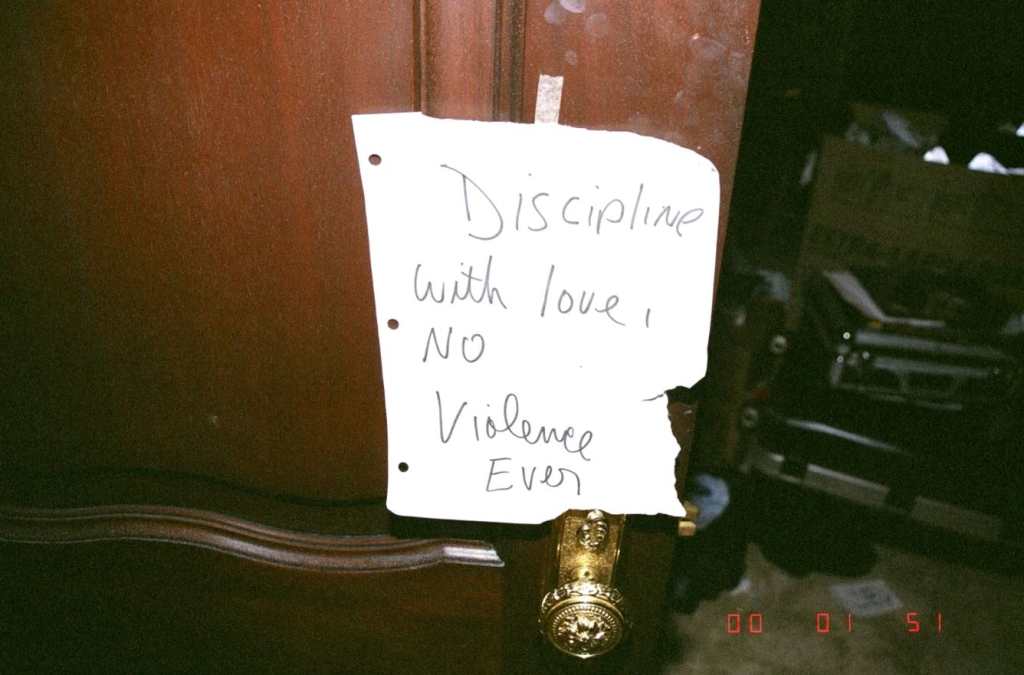 Discipline
with love,
NO
Violence
Ever
00 01 51